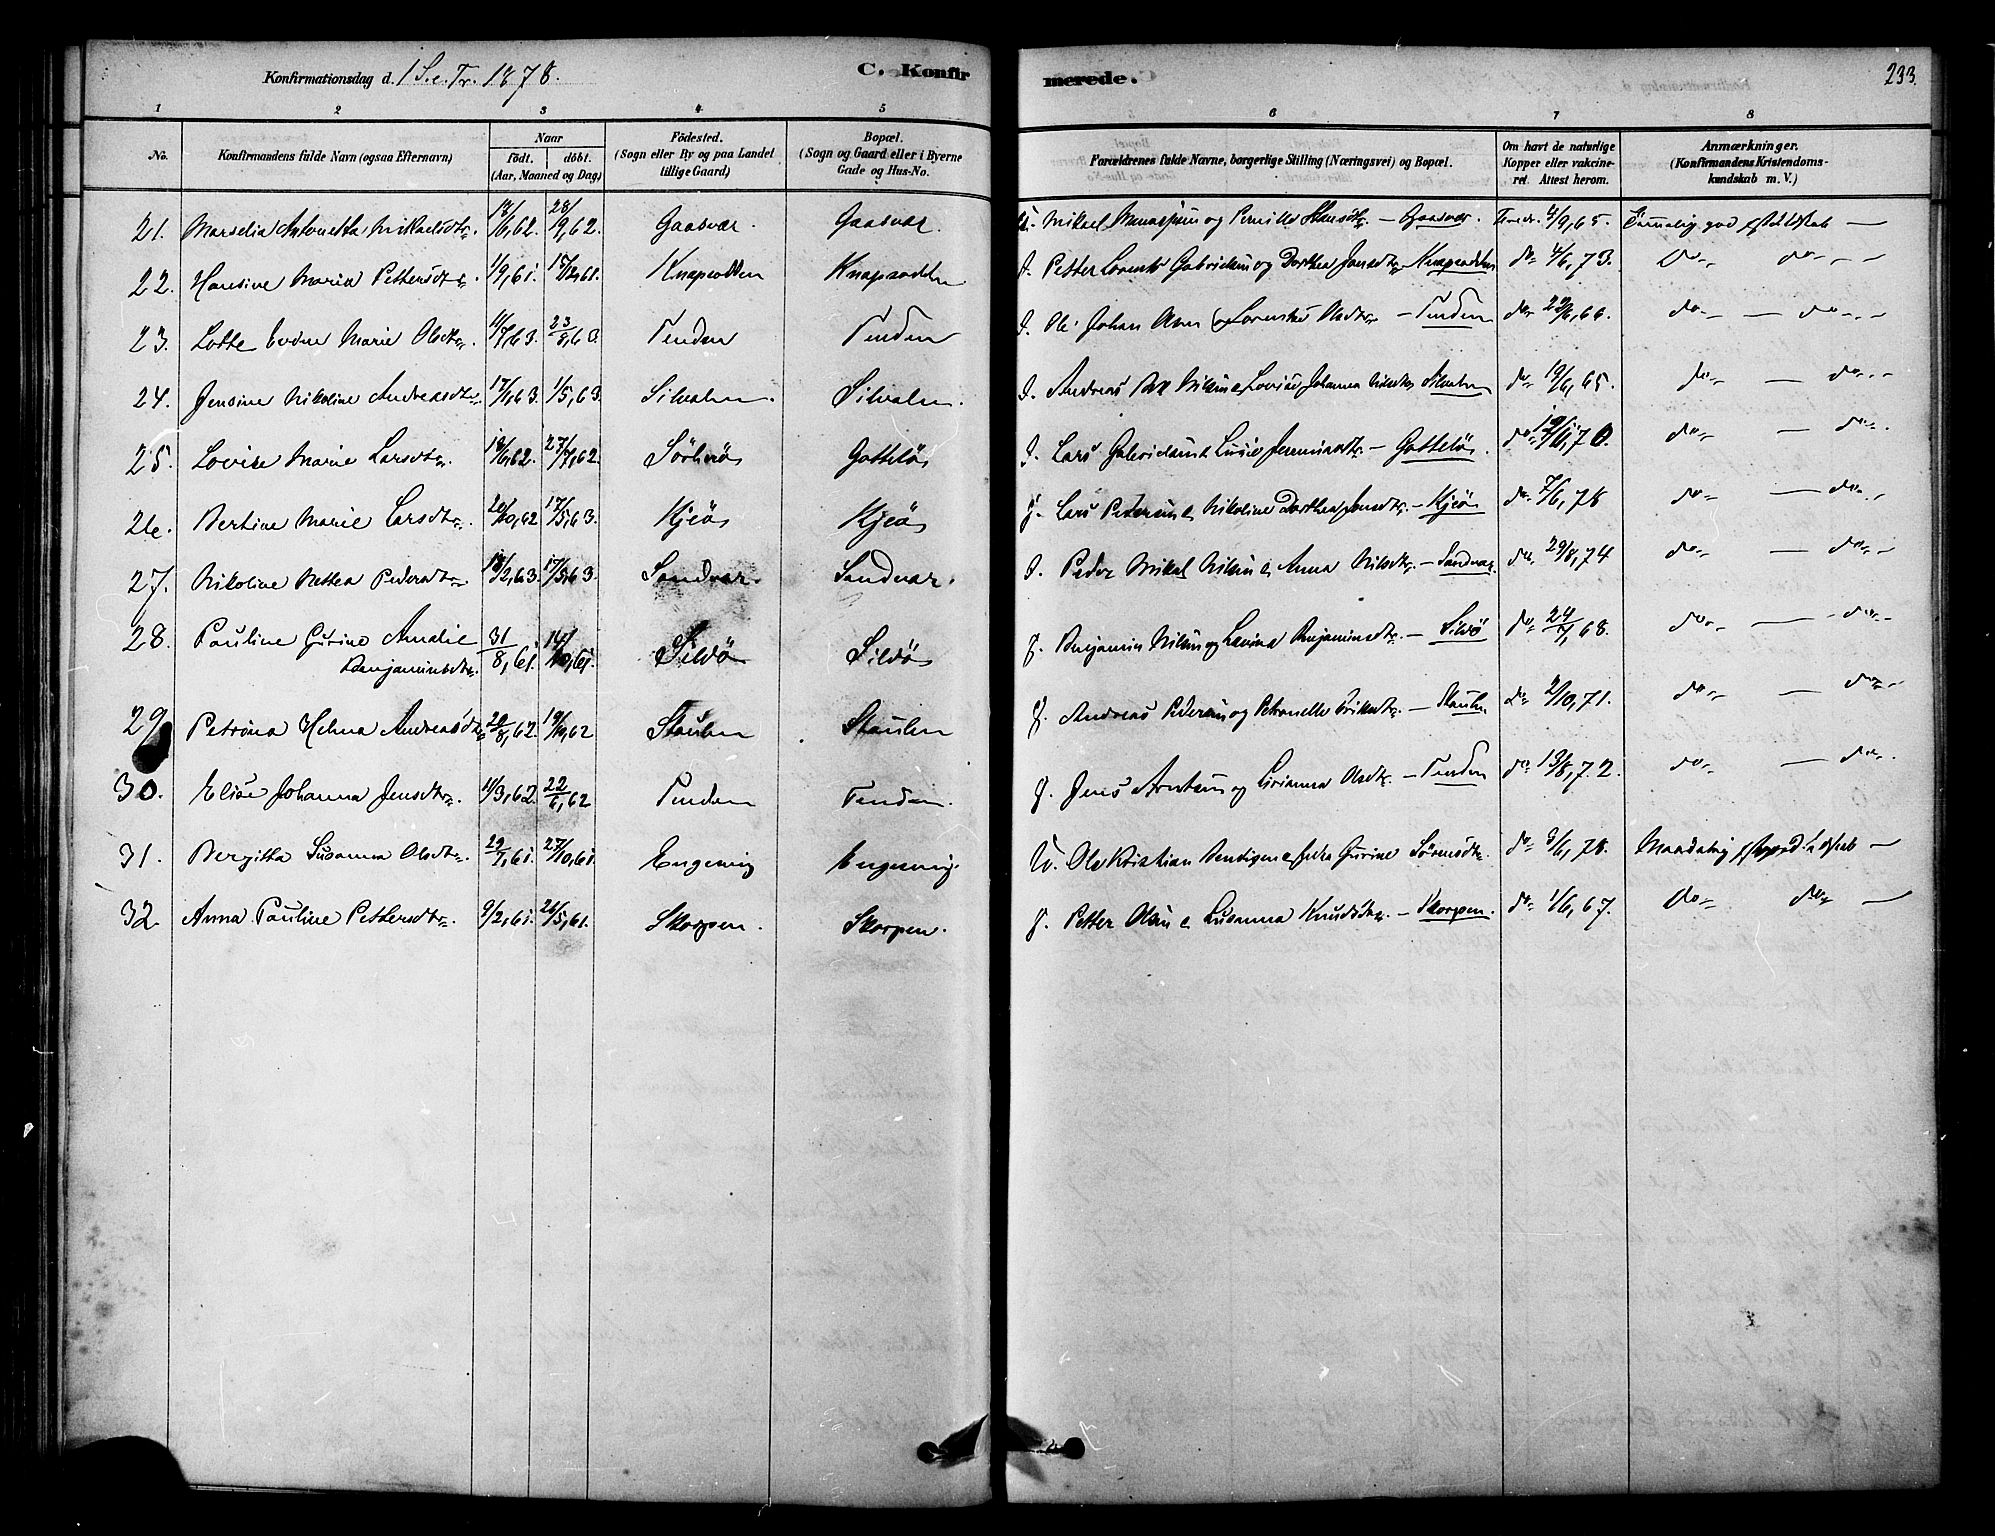 Konfirmationsdag d. 1 S. e. Tr. 1878.
C. Konfirmerede.
233.
1 2 3 4 5 6 7 8
No.
Konfirmandens fulde Navn (ogsaa Efternavn)
Naar
födt. döbt.
(Aar, Maaned og Dag)
Födested.
(Sogn eller By og paa Landet tillige Gaard)
Bopæl.
(Sogn og Gaard eller i Byerne Gade og Hus-No.
Forældrenes fulde Navne, borgerlige Stilling (Næringsvei) og Bopæl.
Om havt de naturlige Kopper eller vakcineret. Attest herom.
Anmærkninger.
(Konfirmandens Kristendomskundskab m. V.)
21. Marselia Antonetta Mikaelsdtr. 18/6,62. 28/9,62. Gaasvær. Gaasvær. Mikael og Pernille Hansdtr. — Gaasvær 4/9,65.
22. Hansine Maria Pettersdtr. 1/9,61 15/12,61. Knapodden Knapodden Petter Lorents Gabrielsen og Dorthea Jonsdtr. Knapodden do 4/6,73. Do do
23. Lotte Marie Olsdtr. 11/7,63. 23/8,63 Tenden Tenden Ole Johan Lorentse Olsdtr. — Tenden do 66. do — do
24. Jensine Nikoline Andreasdtr. 17/1,63. 1/5,63. Silvalen. Silvalen. Andreas Nilsen Lovise Johanna Silvalen do 19/6,65. do — do
25. Lovise Marie Larsdtr. 18/6,62. 27/7,62. Sörherö Gottelö Lars Gabrielsen Lusie Jeremiasdtr. — Gottelö. do 19/6,70. do — do
26. Bertine Marie Larsdtr. 20/10,62 17/5,63. Kjeö Kjeö Lars Pedersen & Nikoline Dorthea Jonsdtr. — Kjeö do 7/6,78 do — do
27. Nikoline Nettea Pedersdtr. 18/2,63. 17/5,63. Sandvær. Sandvær. Peder Mikal Nilsen & Anna Nilsdtr. — Sandvær. do 29/8,74 do — do
28. Pauline Gurine Amalie 31/8,61. 14/10,61. Sildö Sildö Benjamin Nilsen og Lavina Benjaminsdtr. — Sildö do 24/7,68. do — do
Benjaminsdtr.
29 Petrina Helena Andreasdtr. 20/8,62. 19/10,62 Staulen Staulen Andreas Pedersen og Petronelle Eriksdtr. — Staulen do 2/10,71. do — do
30. Elise Johanna Jensdtr. 11/3,62. 22/6,62 Tenden Tenden. Jens Arntsen og Olsdtr. — Tenden do 13/8,72. do — do
31. Bergitta Susanna Olsdtr. 29/7,61. 27/10,61. Engevig Engevig. Ole Kristian Gurine Sörensdtr. do 9/6,78.
32. Anna Pauline Pettersdtr. 9/2,61. 26/5,61. Skorpen. Skorpen. Petter Olsen & Susanna Knudsdtr. — Skorpen. do 1/6,67. do do